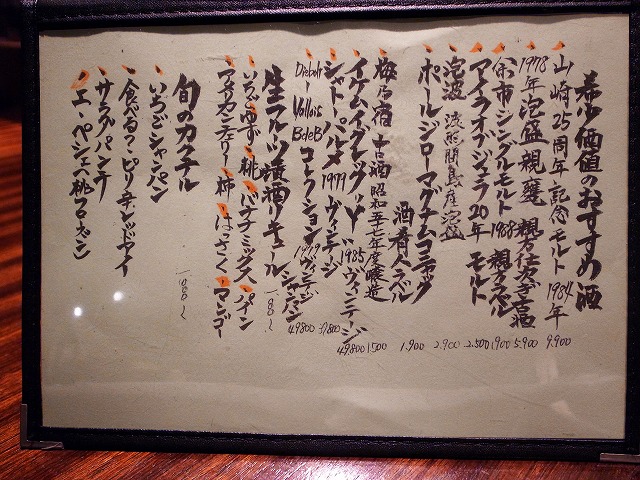 希少価値のおすすめ酒
山崎25周年記念モルト 1984年 9.900
1978年泡盛親甕 親方仕次ぎ古酒 5.900
余市シングルモルト 1988 親父ラベル 1.900
アイラオブジュラ20年 モルト 2.500
泡波 波照間島産泡盛 2.900
ポールジローマグナムコニャック 1.900
酒肴人ラベル
梅乃宿 古酒 昭和五七年度醸造 1.500
イケムイグレック 1985 ヴィンテージ 49.800
シャトーパルメ 1979 ヴィンテージ 37.800
Diebolt-Vallois BdeB コレクション 1979 ヴィンテージ シャンパン 49.800
生フルーツ積酒リキュール 1.80〜
いちご ゆず 桃 バナナミックス パイン
アメリカンチェリー 柿 はっさく マンゴー
旬のカクテル 1.000〜
いちごシャンパン
食べる?ピリ辛レッドアイ
サラダパンチ
エ・ペシェ(桃フローズン)